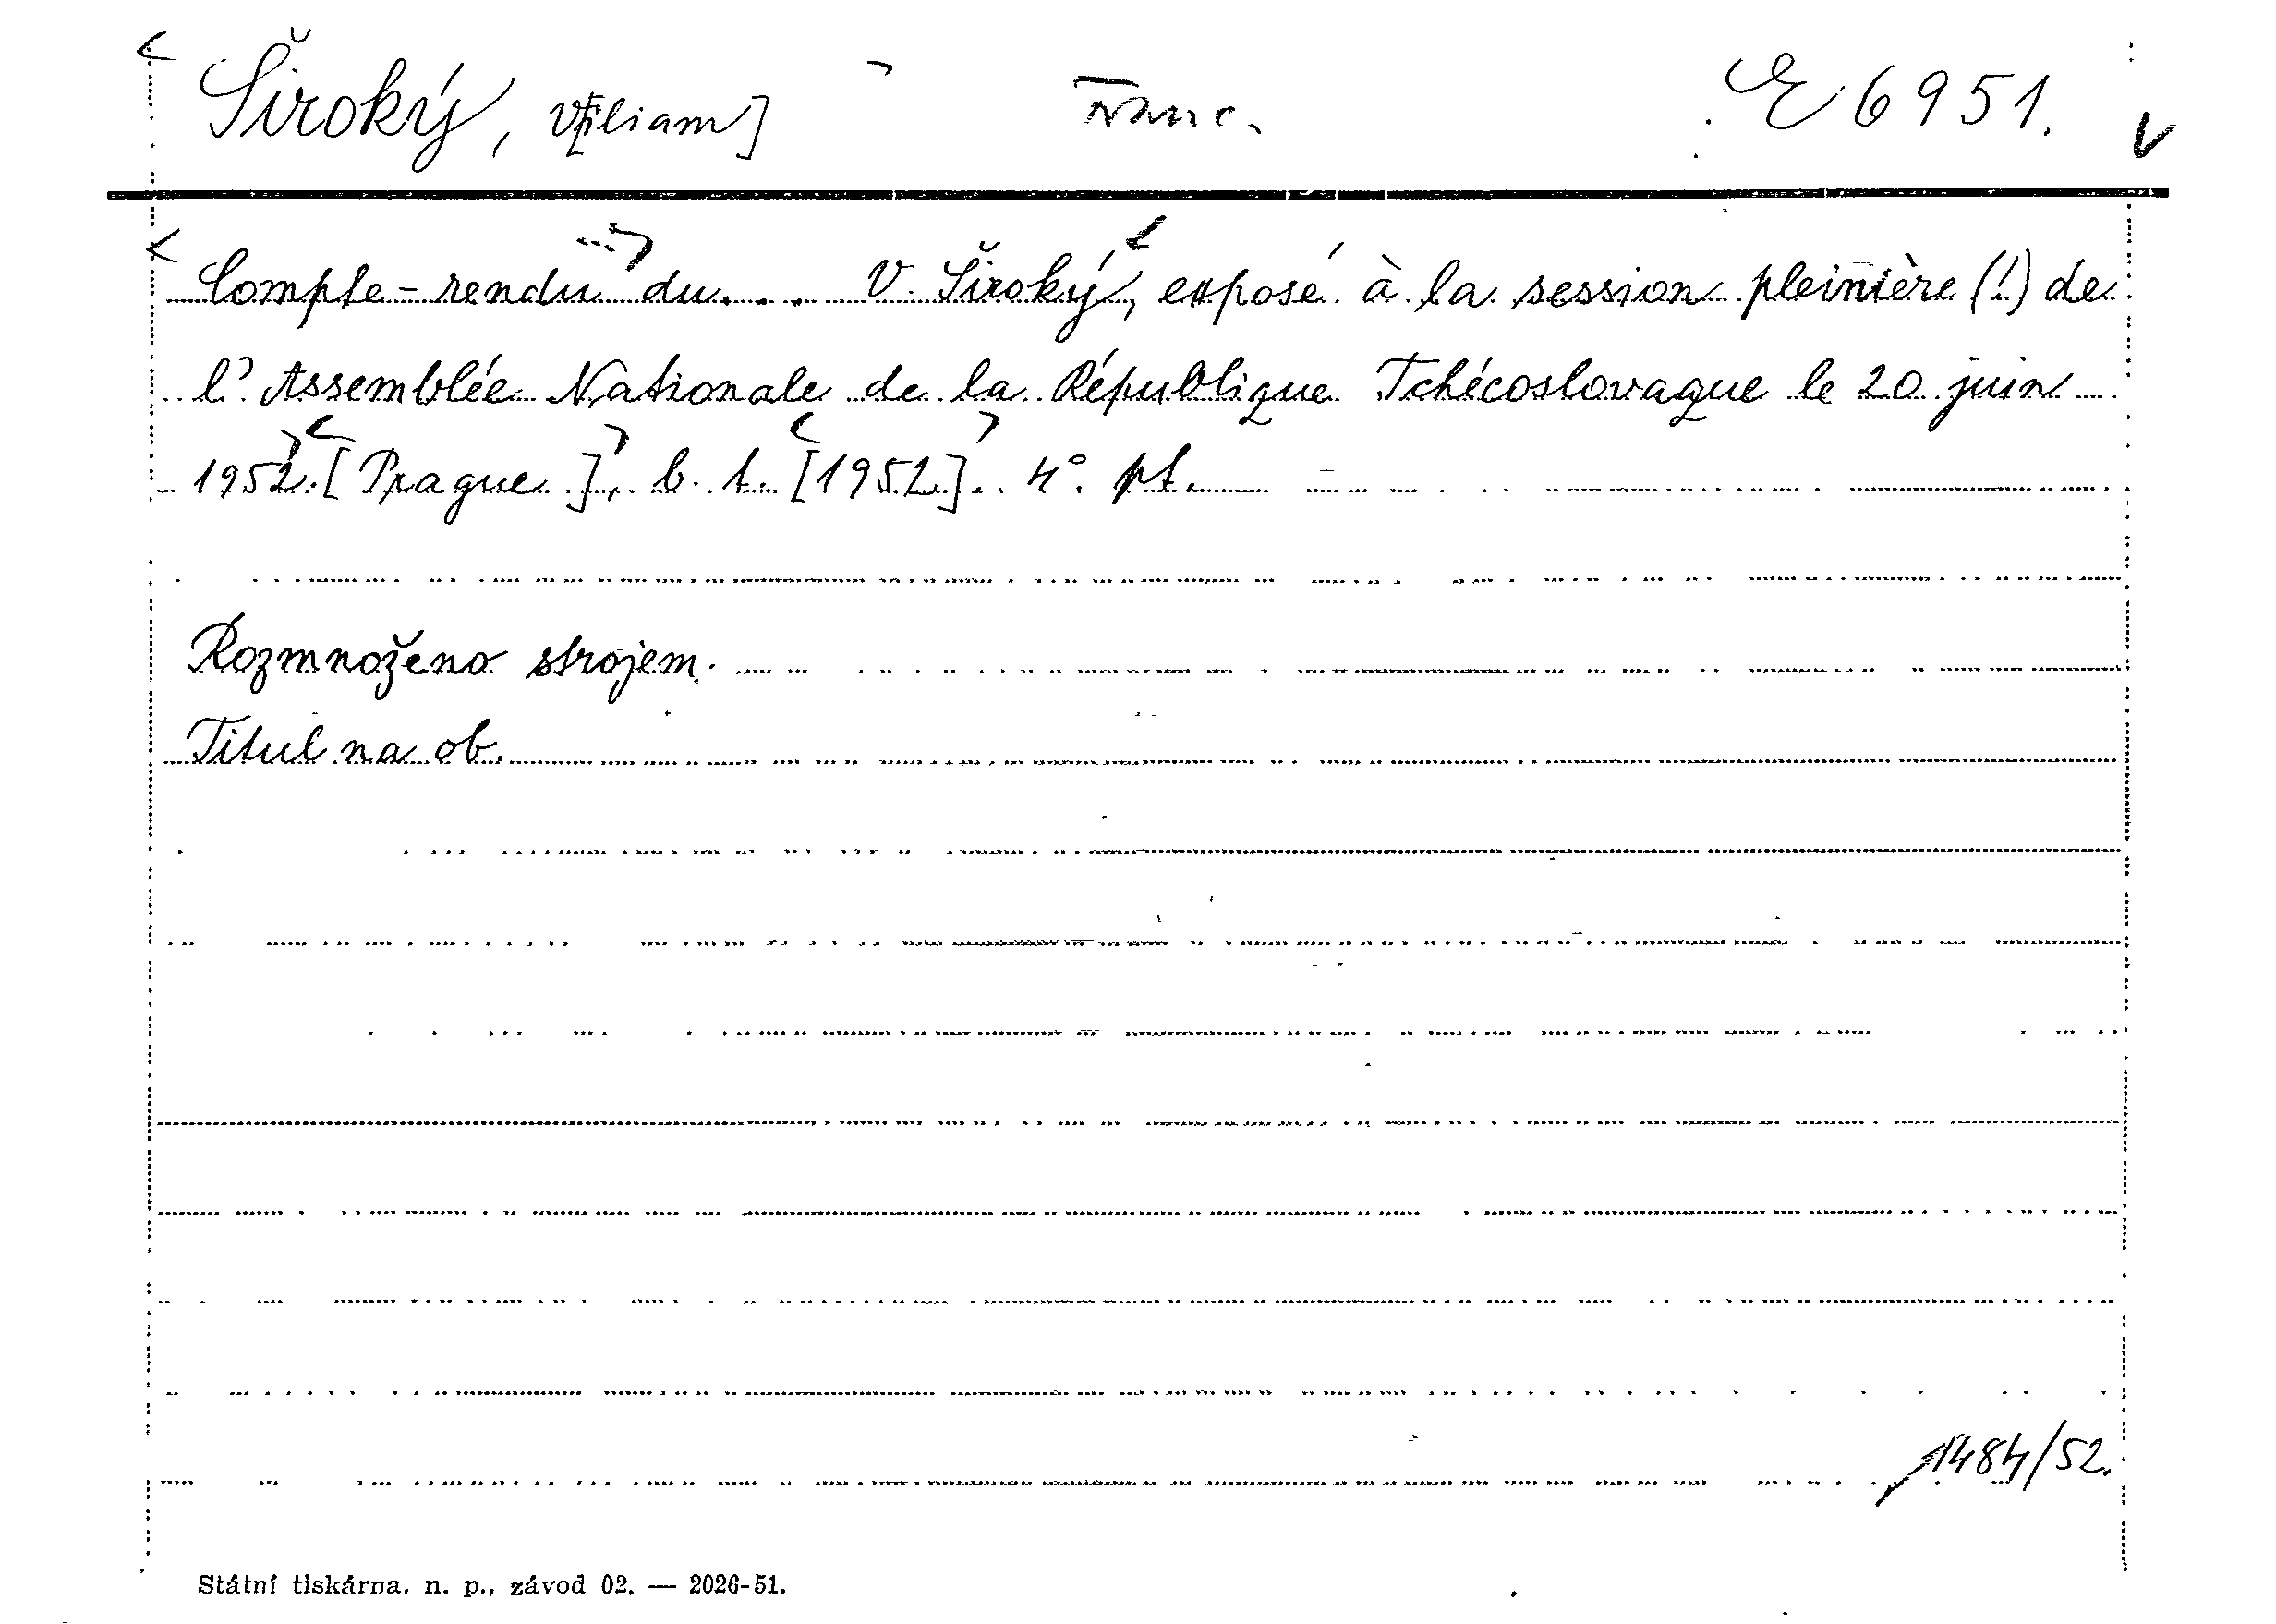 Široký, V[iliam] Franc. E 6951.
Compte-rendu du... V. Široký, exposé à la session pleinière (!) de
l'Assemblée Nationale de la République Tchécoslovaque le 20 juin
1952. [Prague], b. t. [1952]. 4°. pt.
Rozmnoženo strojem.
Titul na ob.
1484/52.
Státní tiskárna, n. p., závod 02. — 2026-51.